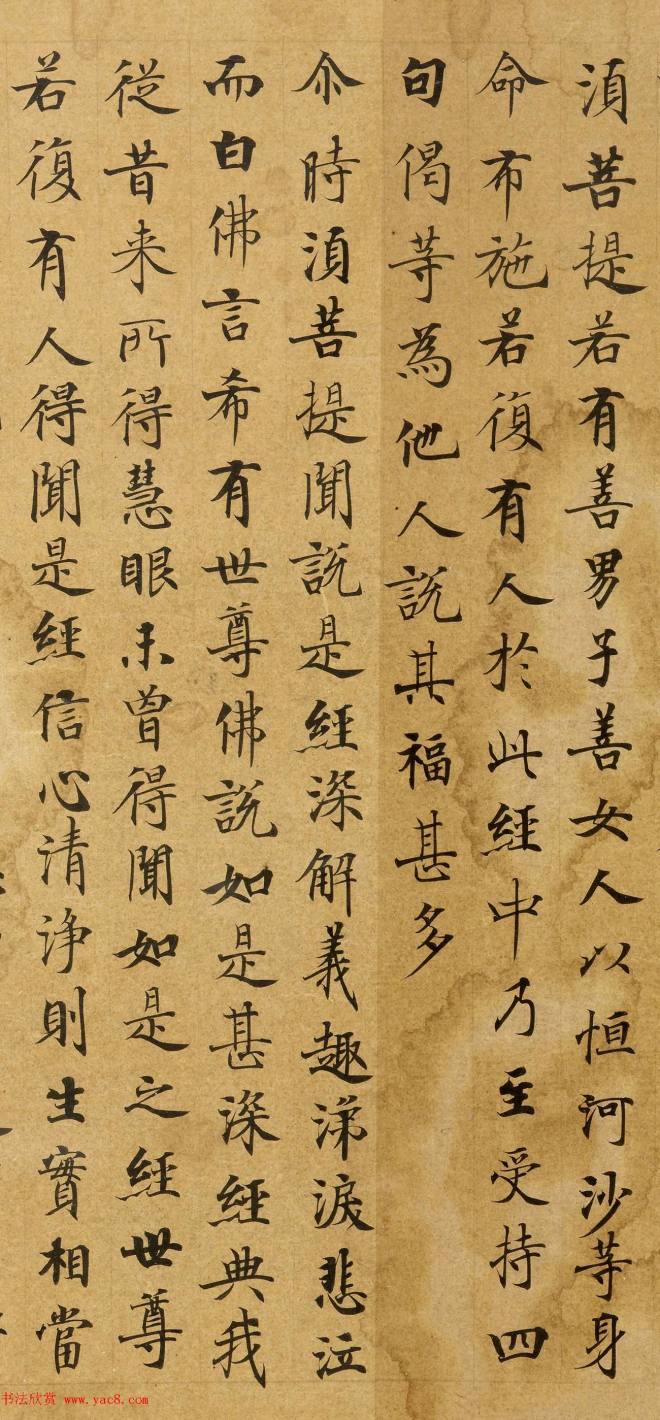 須菩提若有善男子善女人以恒河沙等身
命布施若復有人於此經中乃至受持四
句偈等為他人說其福甚多
尒時須菩提聞說是經深解義趣涕淚悲泣
而白佛言希有世尊佛說如是甚深經典我
從昔来所得慧眼未曾得聞如是之經世尊
若復有人得聞是經信心清淨則生實相當
书法欣赏 www.yac8.com